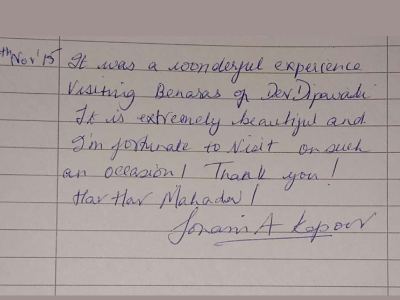 th Nov '15 It was a woonderful experience
Visiting Benaras of Dev Dipawali
It is extremely beautiful and
I'm fortunate to Visit on such
an occasion! Thank you!
Har Har Mahadev!
Sonam A Kapoor